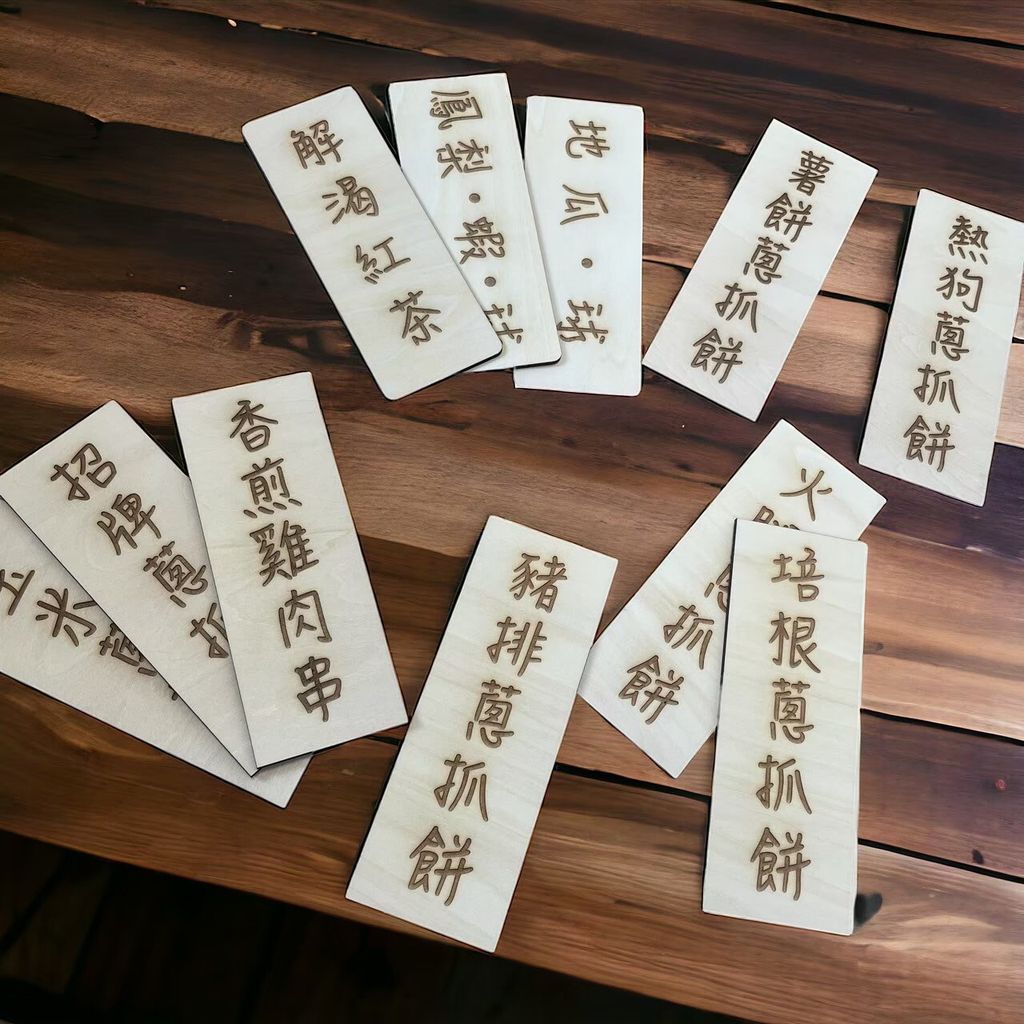 解渴紅茶
鳳梨·蝦·球
地瓜·球
薯餅蔥抓餅
熱狗蔥抓餅
玉米蔥
招牌蔥抓
香煎雞肉串
豬排蔥抓餅
火腿蔥抓餅
培根蔥抓餅